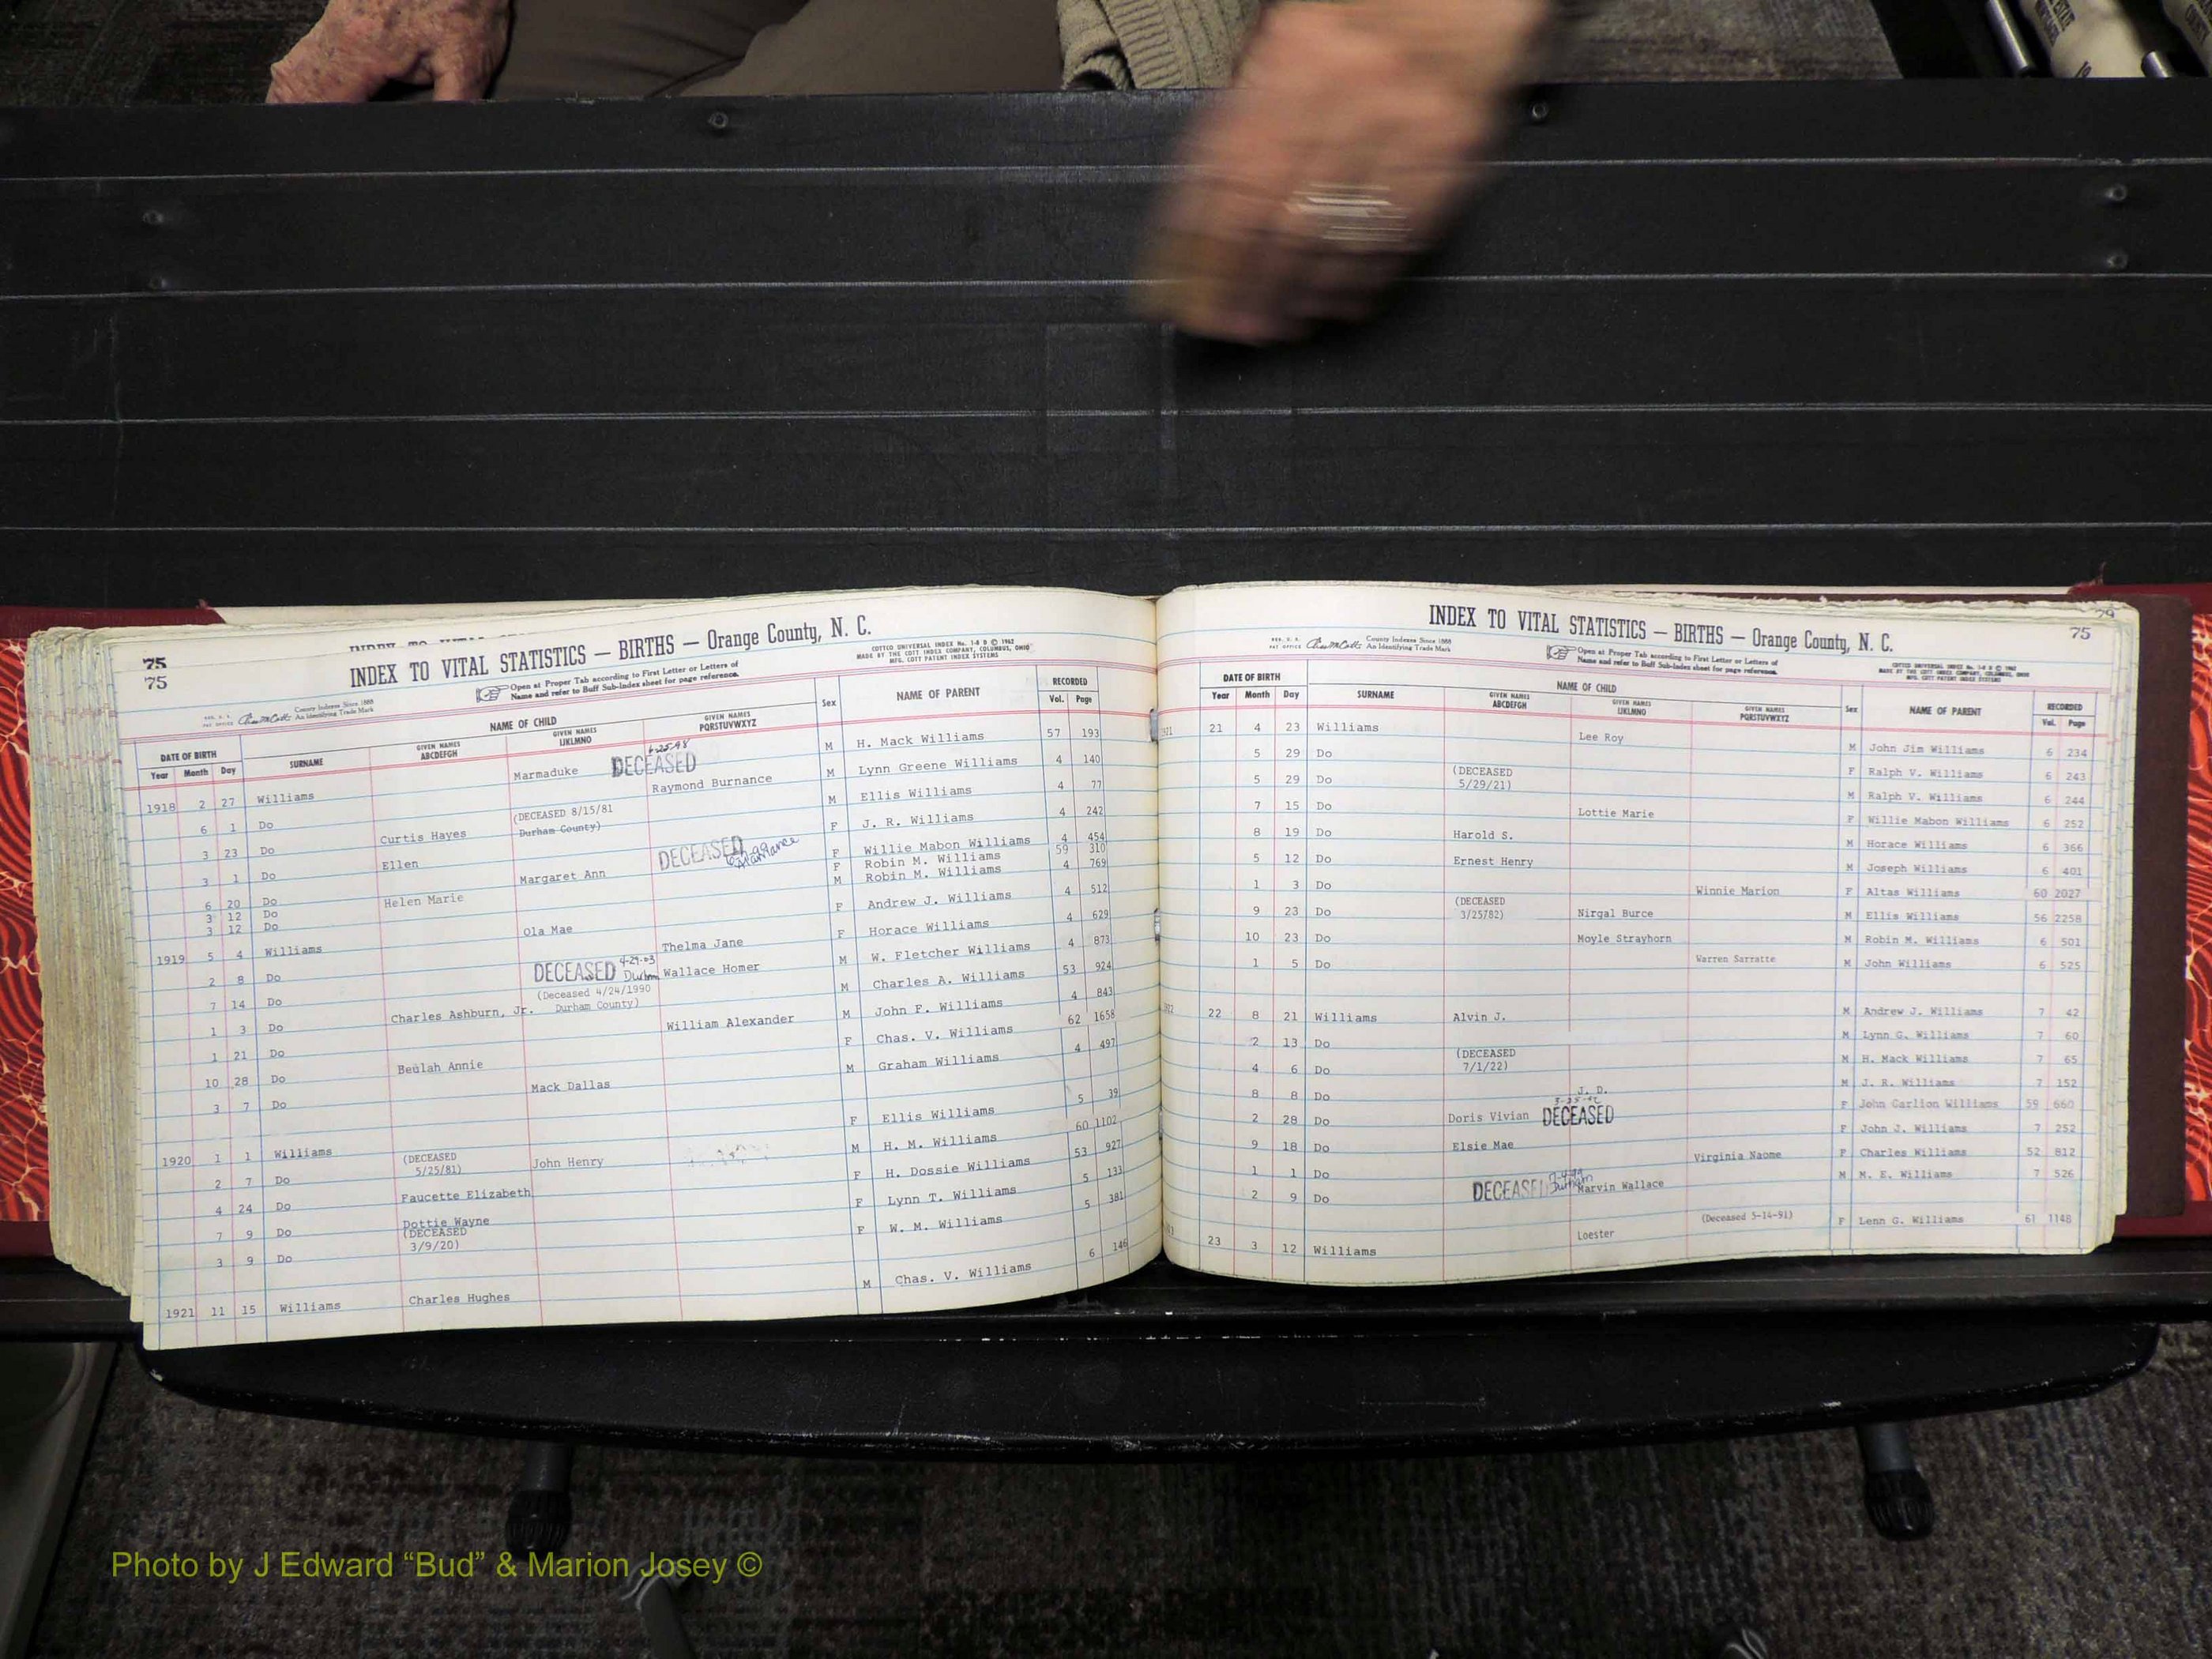 75
75
INDEX TO VITAL STATISTICS — BIRTHS — Orange County, N. C.
County Indexes Since 1888
An Identifying Trade Mark
Open at Proper Tab according to First Letter or Letters of
Name and refer to Buff Sub-Index sheet for page reference.
COTTCO UNIVERSAL INDEX No. 1-6 B © 1962
MADE BY THE COTT INDEX COMPANY, COLUMBUS, OHIO
MFG. COTT PATENT INDEX SYSTEMS
DATE OF BIRTH NAME OF CHILD Sex NAME OF PARENT RECORDED
Year Month Day SURNAME GIVEN NAMES ABCDEFGH GIVEN NAMES IJKLMNO GIVEN NAMES PQRSTUVWXYZ Vol. Page
1918 2 27 Williams Marmaduke DECEASED 6-25-98 M H. Mack Williams 57 193
6 1 Do Raymond Burnance M Lynn Greene Williams 4 140
3 23 Do Curtis Hayes (DECEASED 8/15/81 Durham County) M Ellis Williams 4 77
3 1 Do Ellen F J. R. Williams 4 242
6 20 Do Helen Marie F Willie Mabon Williams 4 454
3 12 Do Margaret Ann DECEASED Alamance F Robin M. Williams 59 310
3 12 Do M Robin M. Williams 4 769
1919 5 4 Williams Ola Mae F Andrew J. Williams 4 512
2 8 Do Thelma Jane F Horace Williams 4 629
7 14 Do DECEASED 4-29-03 Durham Wallace Homer M W. Fletcher Williams 4 873
1 3 Do Charles Ashburn, Jr. (Deceased 4/24/1990 Durham County) M Charles A. Williams 53 924
1 21 Do William Alexander M John F. Williams 4 843
10 28 Do Beulah Annie F Chas. V. Williams 62 1658
3 7 Do Mack Dallas M Graham Williams 4 497
1920 1 1 Williams F Ellis Williams 5 39
2 7 Do (DECEASED 5/25/81) John Henry M H. M. Williams 60 1102
4 24 Do Faucette Elizabeth F H. Dossie Williams 53 927
7 9 Do Dottie Wayne F Lynn T. Williams 5 133
3 9 Do (DECEASED 3/9/20) F W. M. Williams 5 381
1921 11 15 Williams Charles Hughes M Chas. V. Williams 6 146
75
INDEX TO VITAL STATISTICS — BIRTHS — Orange County, N. C.
County Indexes Since 1888
An Identifying Trade Mark
Open at Proper Tab according to First Letter or Letters of
Name and refer to Buff Sub-Index sheet for page reference.
DATE OF BIRTH NAME OF CHILD Sex NAME OF PARENT RECORDED
Year Month Day SURNAME GIVEN NAMES ABCDEFGH GIVEN NAMES IJKLMNO GIVEN NAMES PQRSTUVWXYZ Vol. Page
21 4 23 Williams Lee Roy M John Jim Williams 6 234
5 29 Do F Ralph V. Williams 6 243
5 29 Do (DECEASED 5/29/21) M Ralph V. Williams 6 244
7 15 Do Lottie Marie F Willie Mabon Williams 6 252
8 19 Do Harold S. M Horace Williams 6 366
5 12 Do Ernest Henry M Joseph Williams 6 401
1 3 Do Winnie Marion F Altas Williams 60 2027
9 23 Do (DECEASED 3/25782) Nirgal Burce M Ellis Williams 56 2258
10 23 Do Moyle Strayhorn M Robin M. Williams 6 501
1 5 Do Warren Sarratte M John Williams 6 525
22 8 21 Williams Alvin J. M Andrew J. Williams 7 42
2 13 Do M Lynn G. Williams 7 60
4 6 Do (DECEASED 7/1/22) M H. Mack Williams 7 65
8 8 Do J. D. M J. R. Williams 7 152
2 28 Do Doris Vivian DECEASED F John Carlion Williams 59 660
9 18 Do Elsie Mae F John J. Williams 7 252
1 1 Do Virginia Naome F Charles Williams 52 812
2 9 Do DECEASED Durham Marvin Wallace M M. E. Williams 7 526
23 3 12 Williams Loester (Deceased 5-14-91) F Lenn G. Williams 61 1148
Photo by J Edward “Bud” & Marion Josey ©